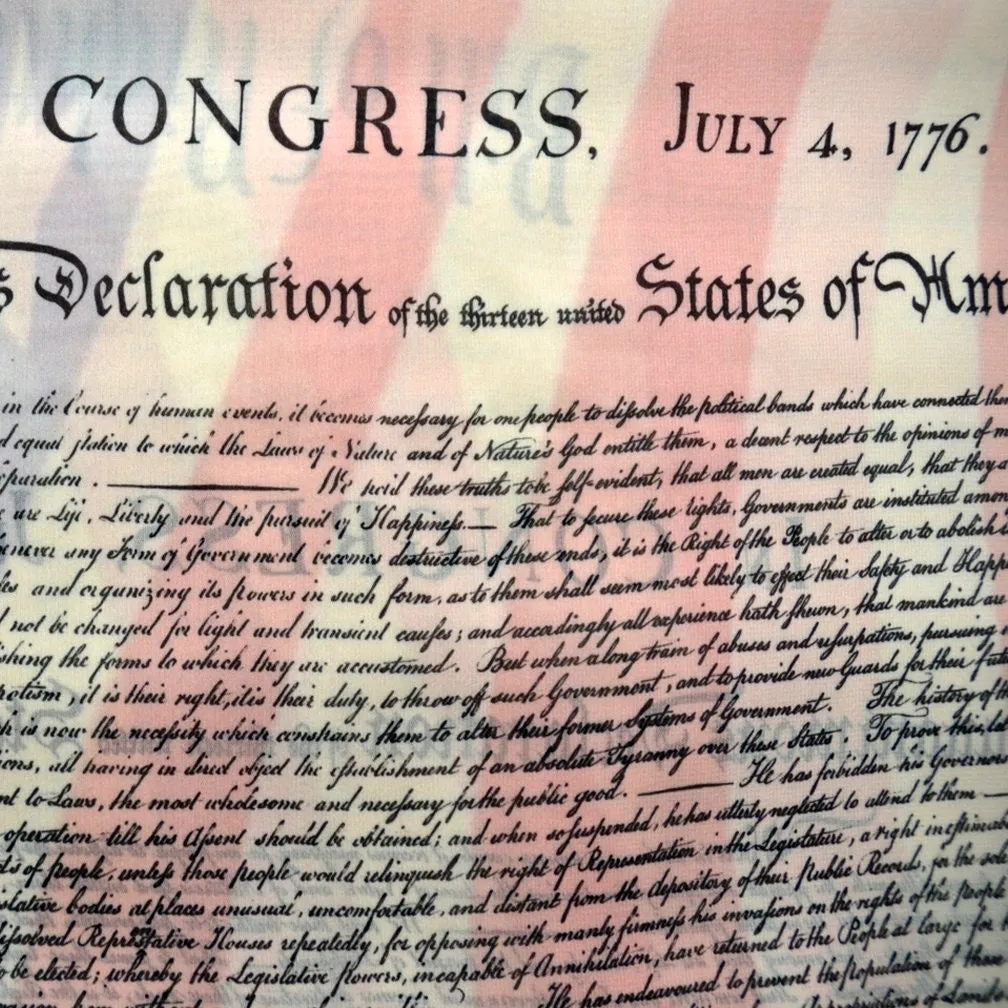 CONGRESS, JULY 4, 1776.
s Declaration of the thirteen united States of Am
in the Course of human events, it becomes necessary for one people to dissolve the political bands which have connected them
d equal station to which the Laws of Nature and of Nature's God entitle them, a decent respect to the opinions of m
eparation. ——— We hold these truths to be self-evident, that all men are created equal, that they a
e are Life, Liberty and the pursuit of Happiness.— That to secure these rights, Governments are instituted amon
henever any Form of Government becomes destructive of these ends, it is the Right of the People to alter or to abolish
les and organizing its powers in such form, as to them shall seem most likely to effect their Safety and Happi
d not be changed for light and transient causes; and accordingly all experience hath shewn, that mankind are
ishing the forms to which they are accustomed. But when a long train of abuses and usurpations, pursuing
potism, it is their right, it is their duty, to throw off such Government, and to provide new Guards for their futu
h is now the necessity which constrains them to alter their former Systems of Government. The history of th
ions, all having in direct object the establishment of an absolute Tyranny over these States. To prove this, let
nt to Laws, the most wholesome and necessary for the public good. ——— He has forbidden his Governors
operation till his Assent should be obtained; and when so suspended, he has utterly neglected to attend to them —
ts of people, unless those people would relinquish the right of Representation in the Legislature, a right inestimab
slative bodies at places unusual, uncomfortable, and distant from the depository of their Public Records, for the sol
dissolved Representative Houses repeatedly, for opposing with manly firmness his invasions on the rights of the people
o be elected; whereby the Legislative powers, incapable of Annihilation, have returned to the People at large for
He has endeavoured to prevent the population of these